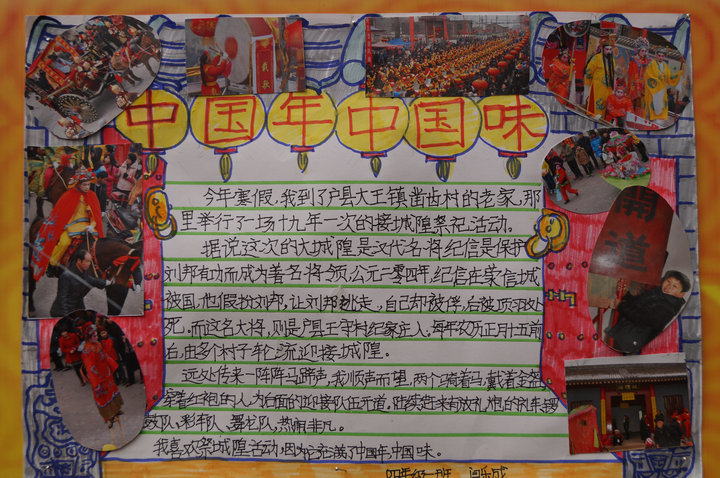 中国年中国味
开道
今年寒假,我到了户县大王镇凿齿村的老家,那
里举行了一场十九年一次的接城隍祭祀活动。
据说这次的大城隍是汉代名将纪信是保护
刘邦有功而成为著名将领,公元二零四年,纪信在荣信城
被围,他假扮刘邦,让刘邦逃走,自己却被俘,后被项羽处
死。而这名大将,则是户县王守村纪家庄人,每年农历正月十五前
后,由多个村子轮流迎接城隍。
远处传来一阵阵马蹄声,我顺声而望,两个骑着马,戴着金盔,
穿着红袍的人为后面的迎接队伍元道,陆续赶来有放礼炮的列车,锣
鼓队,彩车队,舞龙队,热闹非凡。
我喜欢祭城隍活动,因为它充满了中国年,中国味。
四年级一班